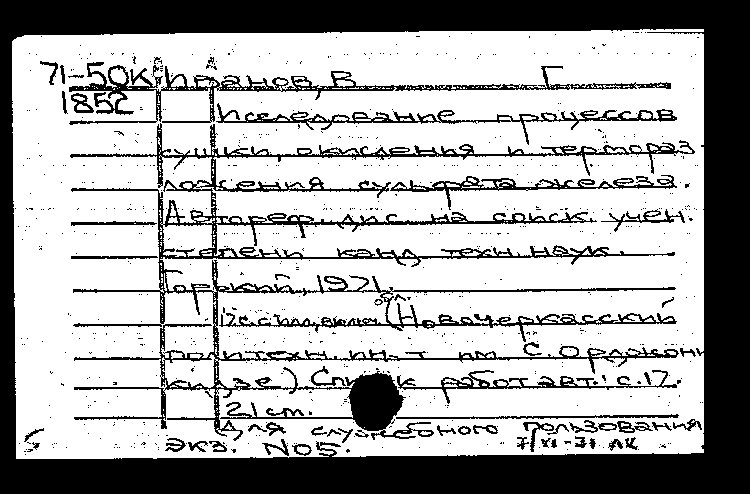 71-50К Иванов, В Г
1852
Исследование процессов
сушки, окисления и термораз-
ложения сульфата железа.
Автореф. дис. на соиск. учен.
степени канд. техн. наук.
Горький, 1971.
17 с. с илл., включ. обл. (Новочеркасский
политехн. ин-т им. С. Орджони
кидзе). Список работ авт.: с. 17.
21 см.
Для служебного пользования
экз. №05. 7/XI-71 ЛК